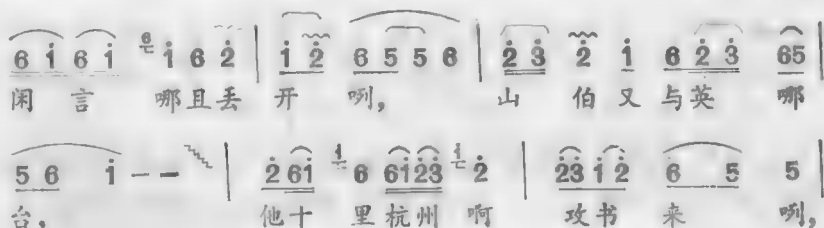 6 i 6 i 6 i 6 2 | i 2 6 5 5 6 | 2 3 2 i 6 2 3 65 |
闲 言 哪且丢 开 咧, 山 伯 又 与英 哪
5 6 i - - | 2 6i i 6 6i23 i 2 | 23 i 2 6 5 5 |
台, 他十 里杭州 啊 攻书 来 咧,